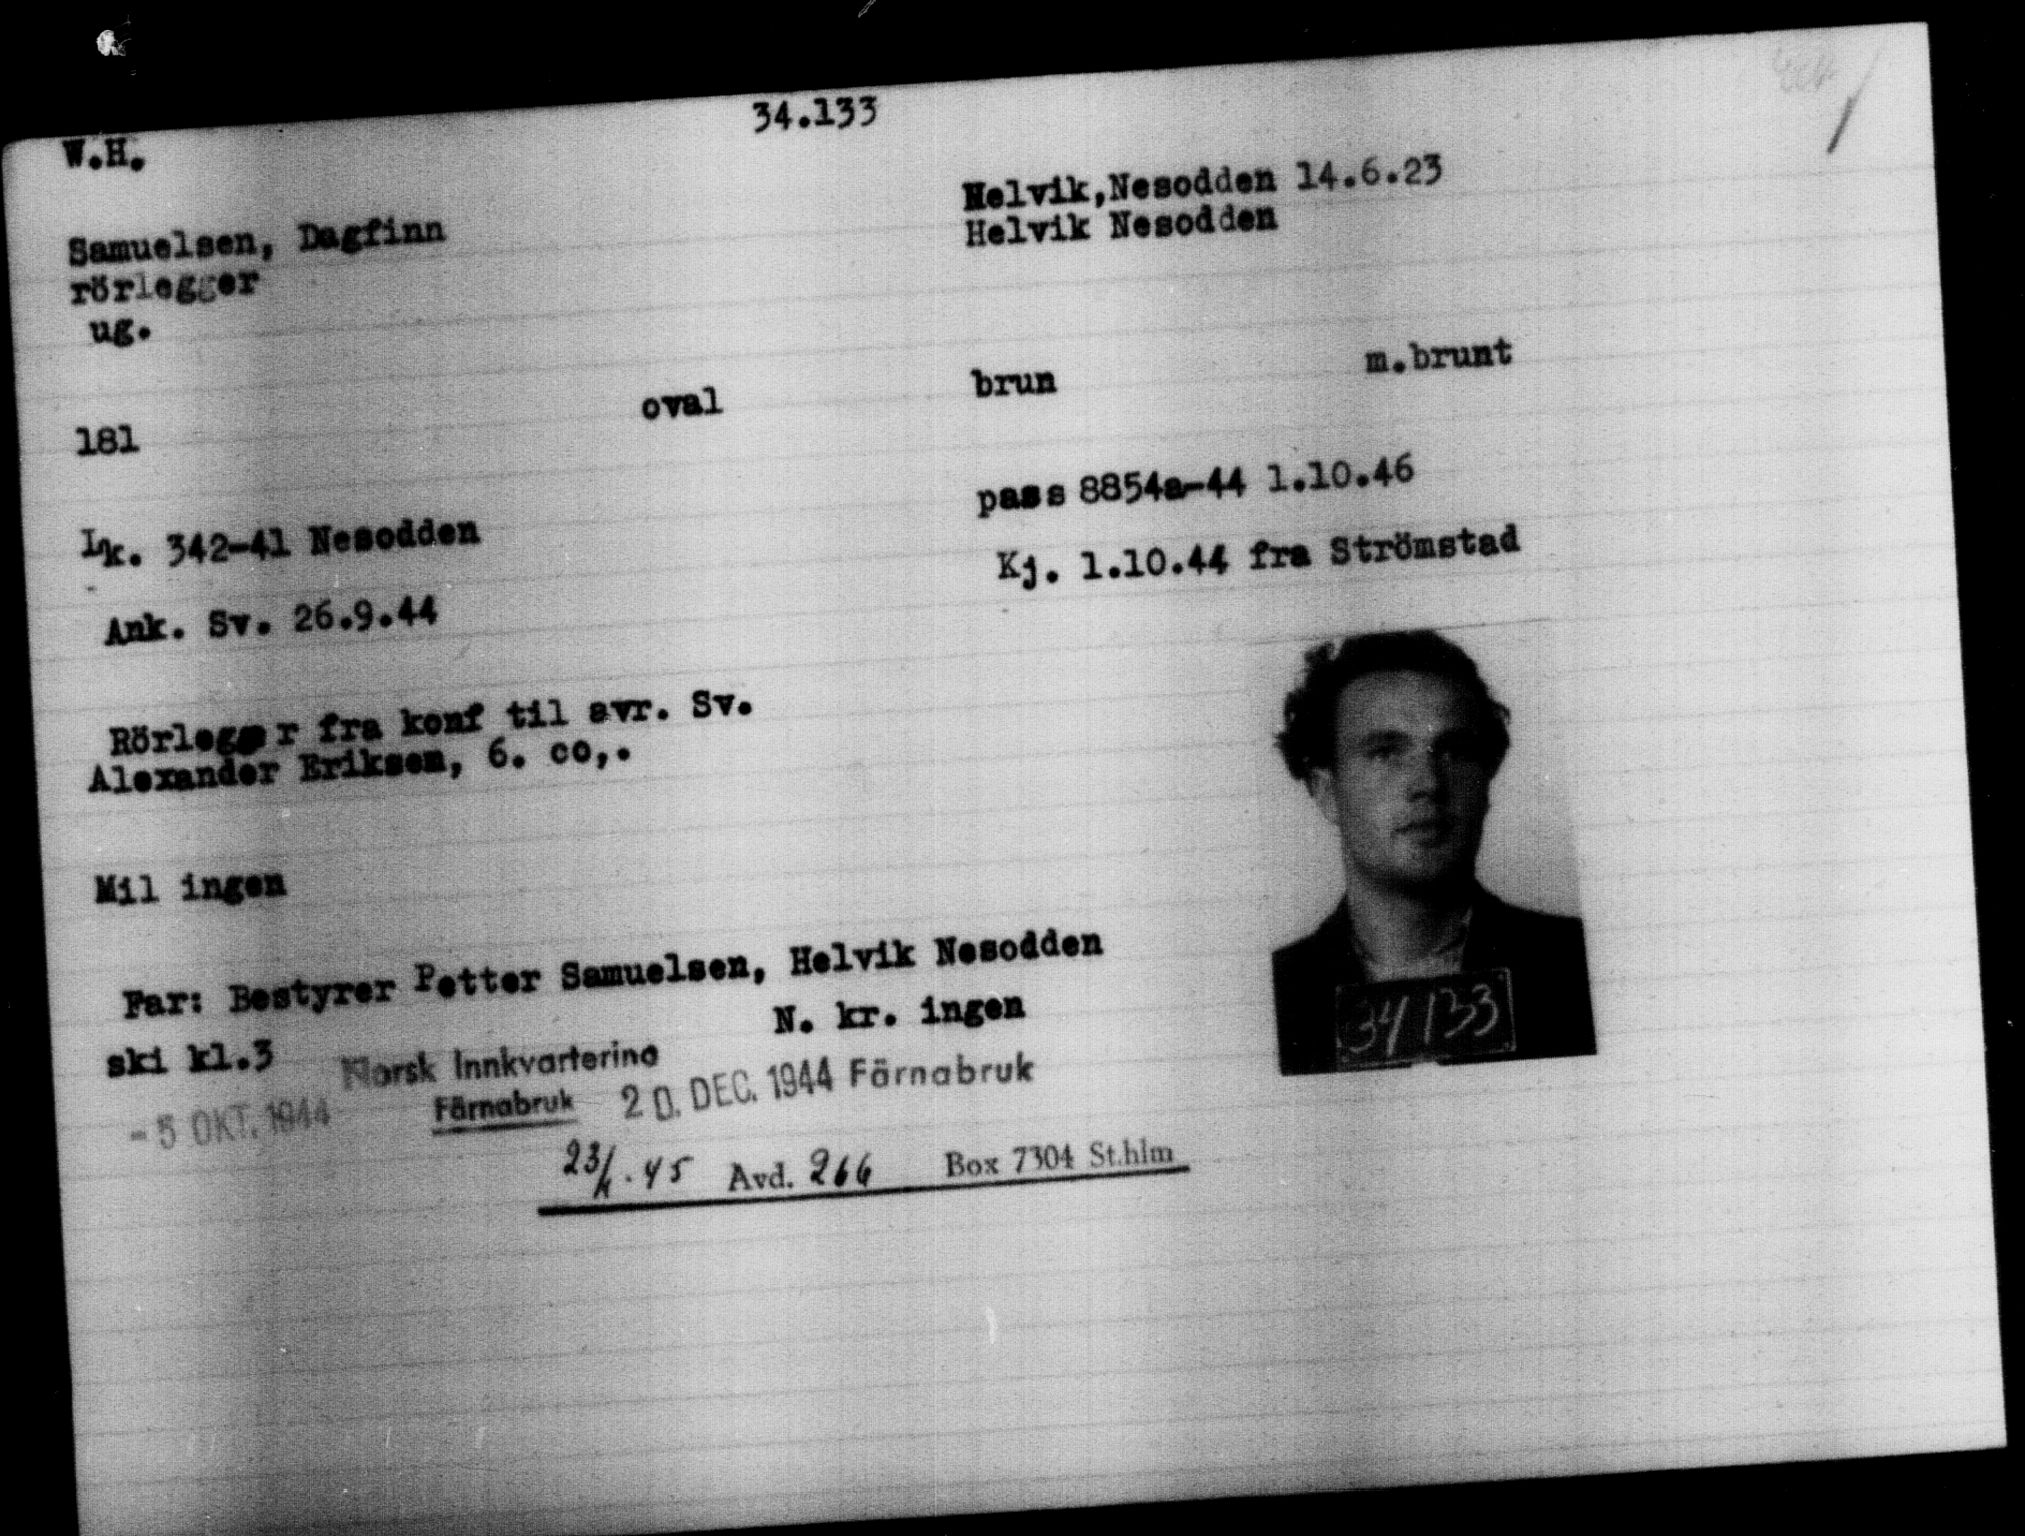 34.133
W.H.
Helvik,Nesodden 14.6.23
Samuelsen, Dagfinn
Helvik Nesodden
rörlegger
ug.
181 oval brun m.brunt
Lk. 342-41 Nesodden
pass 8854a-44 1.10.46
Ank. Sv. 26.9.44
Kj. 1.10.44 fra Strömstad
Rörlegger fra konf til avr. Sv.
Alexander Eriksen, 6. co,.
Mil ingen
Far: Bestyrer Petter Samuelsen, Helvik Nesodden
ski kl.3
N. kr. ingen
Norsk Innkvartering
Färnabruk
- 5 OKT. 1944
20. DEC. 1944 Färnabruk
45 Avd. 266 Box 7304 St.hlm
34133